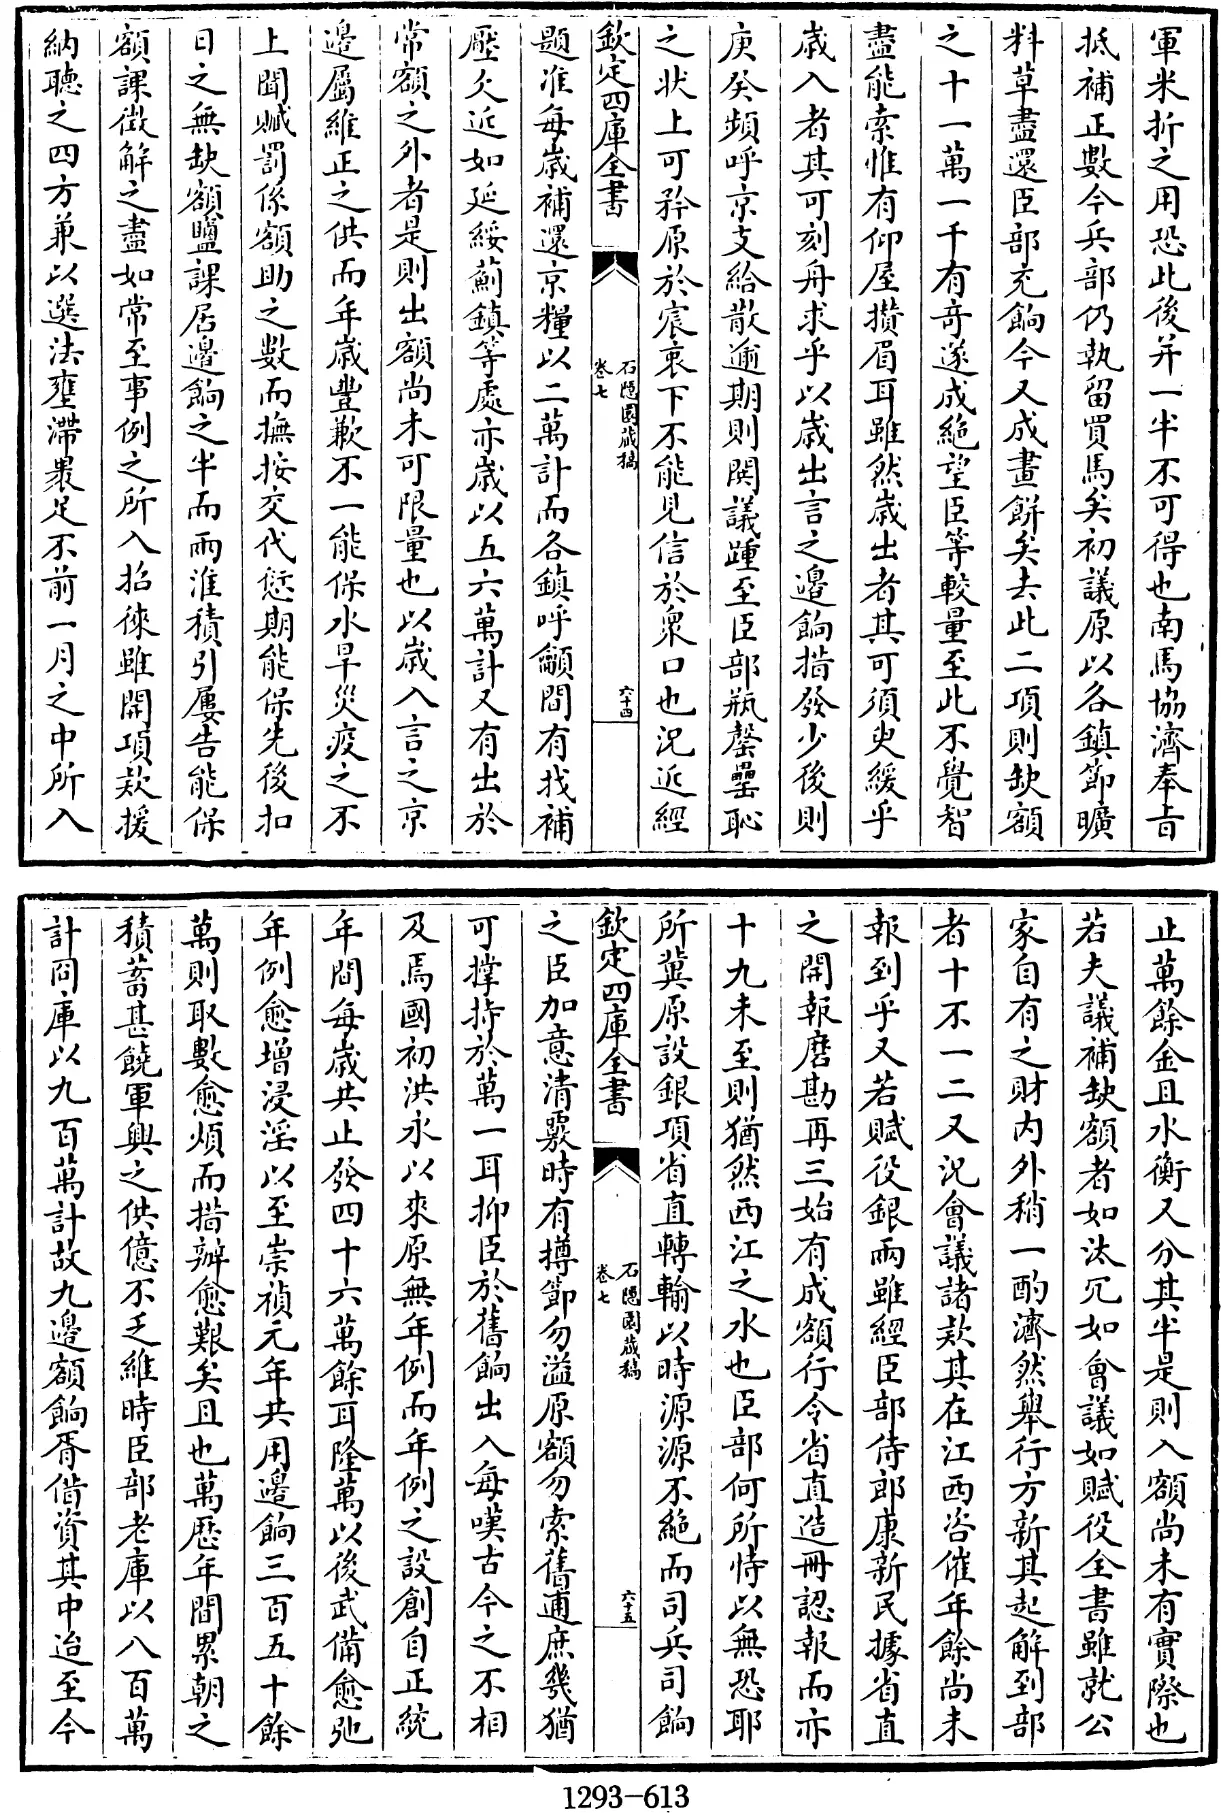 軍米折之用恐此後并一半不可得也南馬協濟奉旨
抵補正數今兵部仍執留買馬矣初議原以各鎮節曠
料草盡還臣部充餉今又成畫餅矣去此二項則缺額
之十一萬一千有奇遂成絶望臣等較量至此不覺智
盡能索惟有仰屋攢眉耳雖然歳出者其可須臾緩乎
歳入者其可刻舟求乎以歳出言之邊餉措發少後則
庚癸頻呼京支給散逾期則鬨議踵至臣部瓶罄罍恥
之状上可矜原於宸衷下不能見信於衆口也況近經
欽定四庫全書
石隱園藏稿
卷七
六十四
題准每歳補還京糧以二萬計而各鎮呼籲間有找補
壓欠近如延綏薊鎮等處亦歳以五六萬計又有出於
常額之外者是則出額尚未可限量也以歳入言之京
邊屬維正之供而年歳豐歉不一能保水旱災疫之不
上聞贓罰係額助之數而撫按交代愆期能保先後扣
日之無缺額鹽課居邊餉之半而兩淮積引屢告能保
額課徴解之盡如常至事例之所入招徠雖開項欵援
納聽之四方兼以選法壅滯褁足不前一月之中所入
止萬餘金且水衡又分其半是則入額尚未有實際也
若夫議補缺額者如汰冗如會議如賦役全書雖就公
家自有之財内外稍一酌濟然舉行方新其起解到部
者十不一二又況會議諸欵其在江西咨催年餘尚未
報到乎又若賦役銀兩雖經臣部侍郎康新民據省直
之開報磨勘再三始有成額行令省直造冊認報而亦
十九未至則猶然西江之水也臣部何所恃以無恐耶
所冀原設銀項省直轉輸以時源源不絶而司兵司餉
欽定四庫全書
石隱園藏稿
卷七
六十五
之臣加意清覈時有撙節勿溢原額勿索舊逋庶幾猶
可撑持於萬一耳抑臣於舊餉出入每嘆古今之不相
及焉國初洪永以來原無年例而年例之設創自正統
年間每歳共止發四十六萬餘耳隆萬以後武備愈弛
年例愈增浸淫以至崇禎元年共用邊餉三百五十餘
萬則取數愈煩而措辦愈艱矣且也萬歴年間累朝之
積蓄甚饒軍興之供億不乏維時臣部老庫以八百萬
計冏庫以九百萬計故九邊額餉胥借資其中迨至今
1293-613